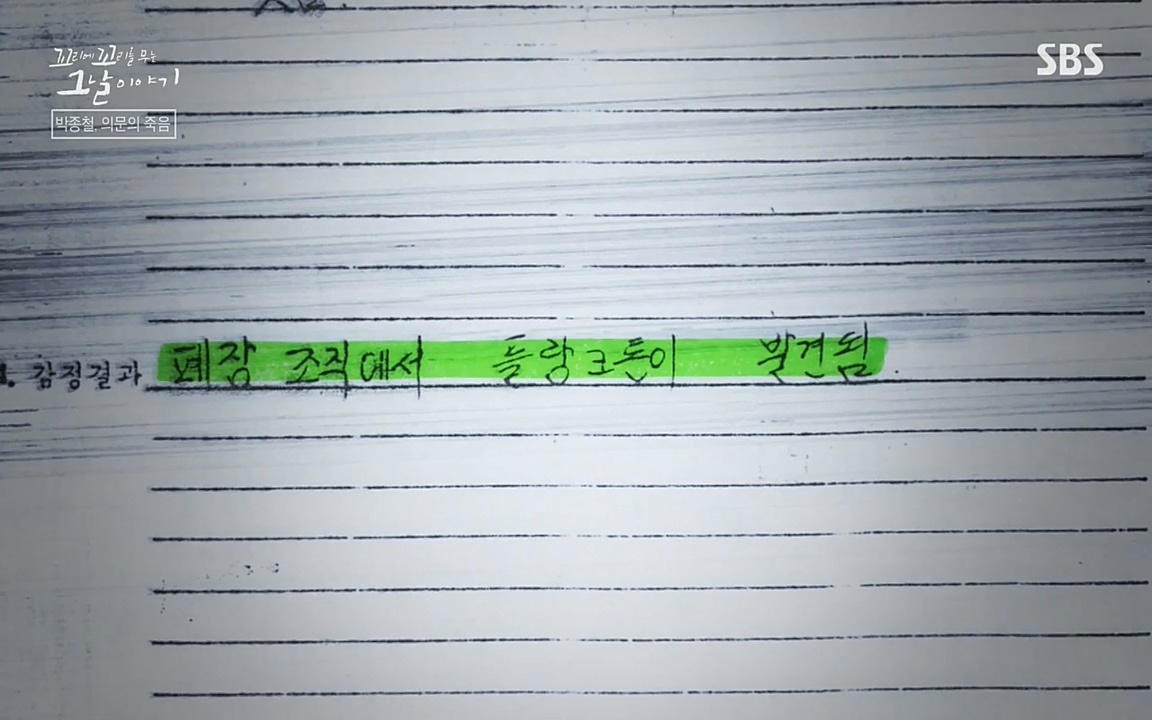 꼬리에 꼬리를 무는
그날 이야기
박종철, 의문의 죽음
SBS
감정결과 폐장 조직에서 플랑크톤이 발견됨.